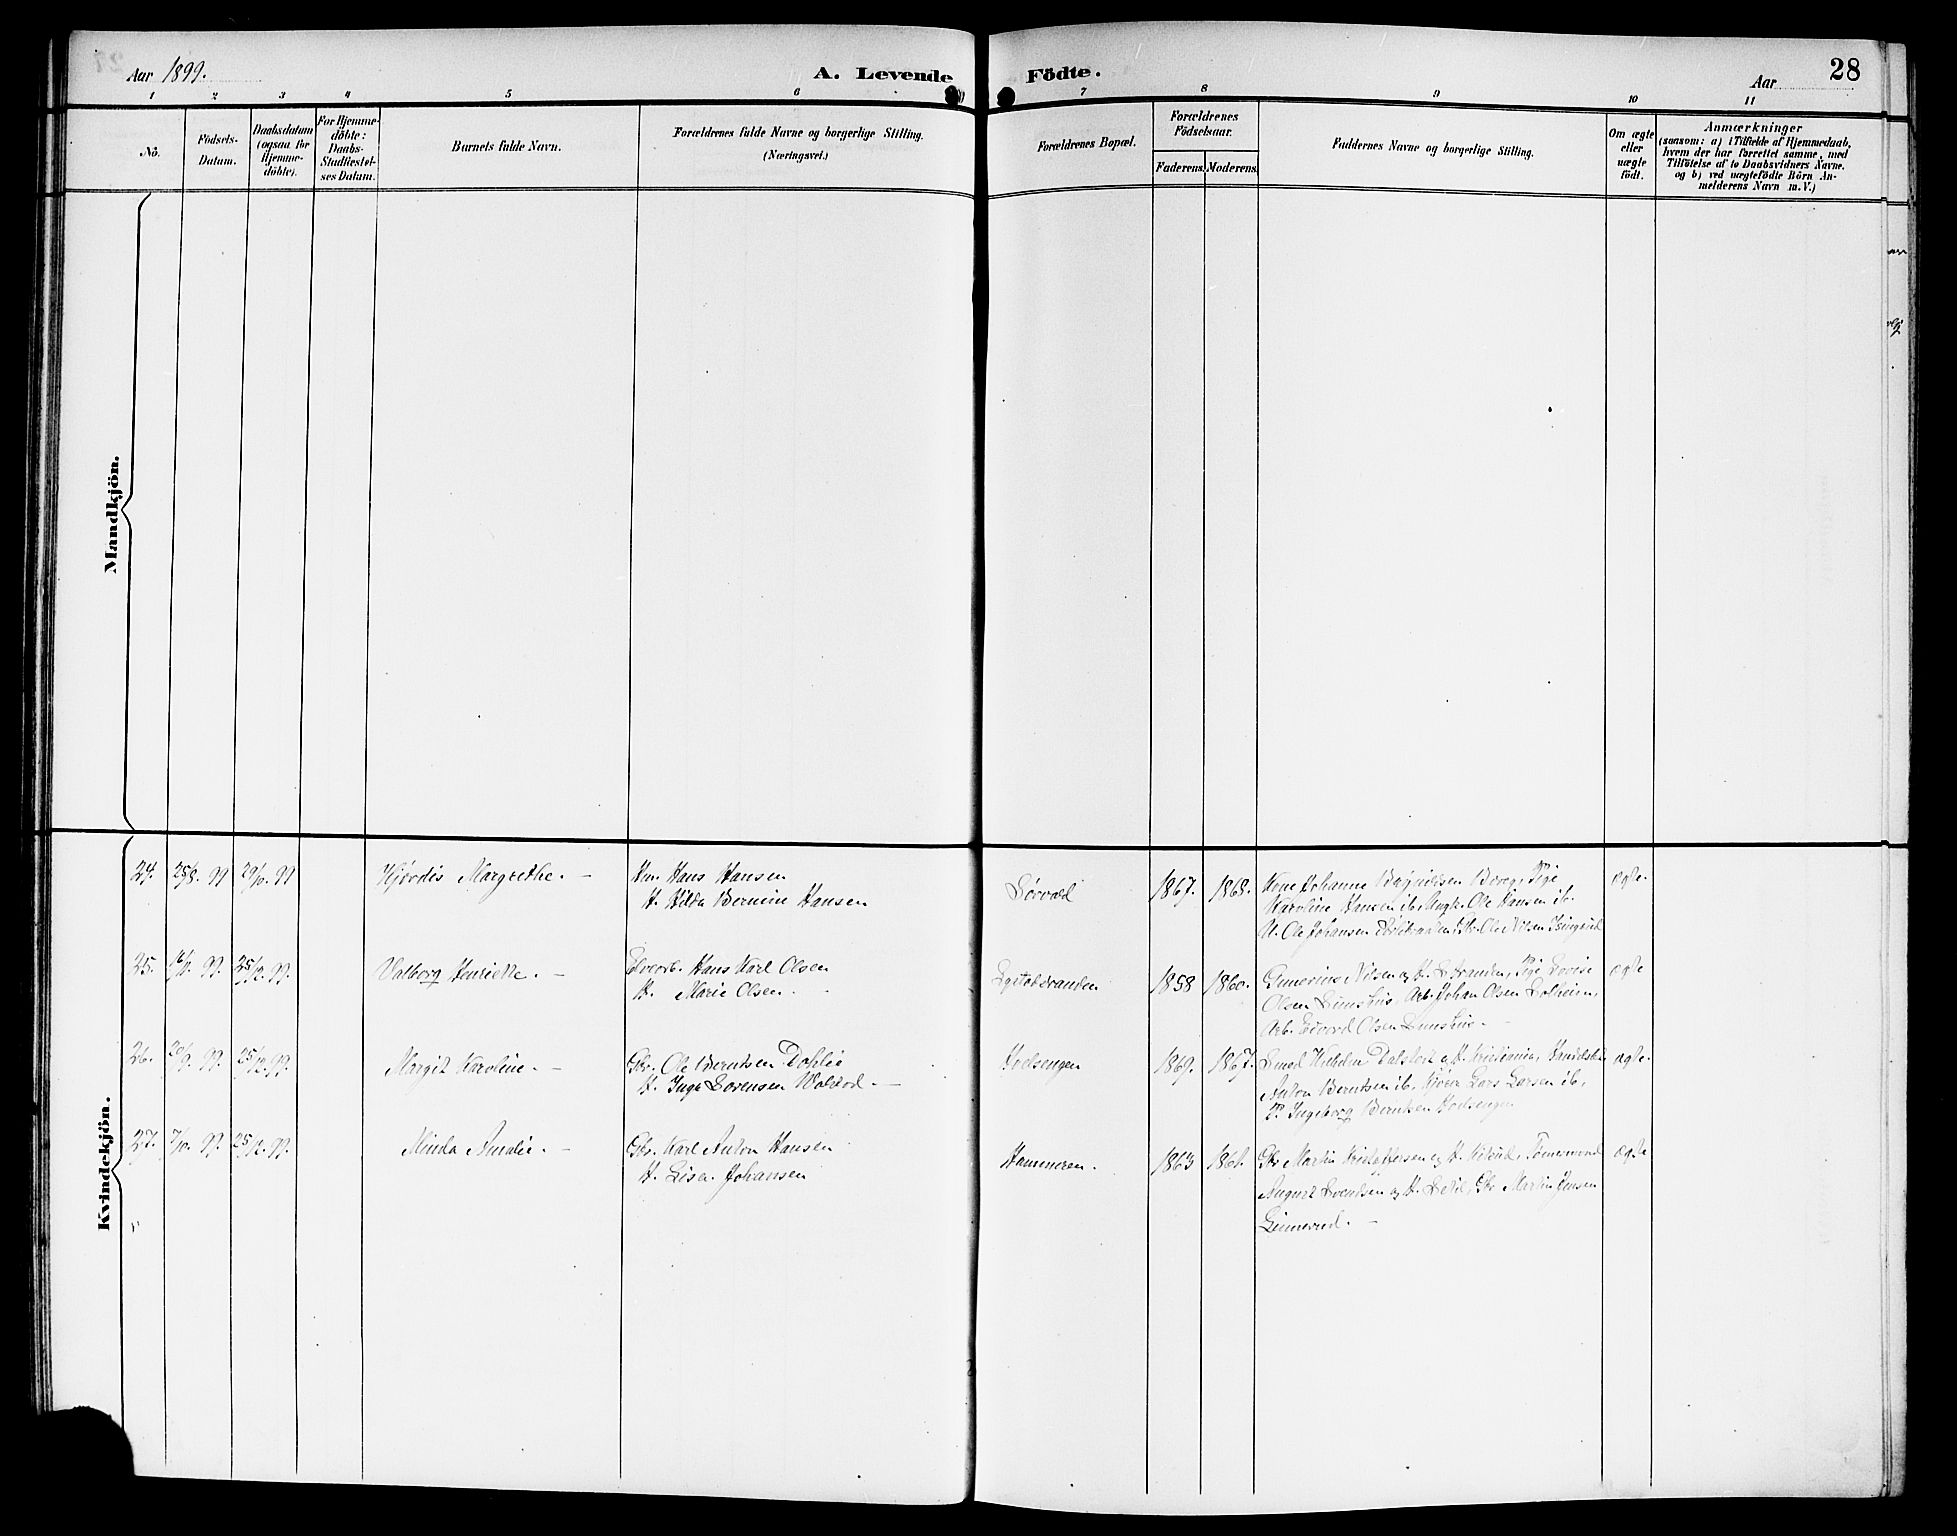 Aar 1899.
A. Levende
Födte.
Aar
28
1 2 3 4 5 6
7 8 9 10 11
No.
Födsels-
Datum.
Daabsdatum
(ogsaa for
Hjemme-
döbte).
For Hjemme-
döbte:
Daabs-
Stadfæstel-
ses Datum.
Barnets fulde Navn.
Forældrenes fulde Navne og borgerlige Stilling.
(Næringsvei.)
Forældrenes Bopæl.
Forældrenes
Födselsaar.
Faderens. Moderens.
Faddernes Navne og borgerlige Stilling.
Om ægte
eller
uægte
födt.
Anmærkninger
(saasom: a) i Tilfælde af Hjemmedaab,
hvem der har forrettet samme, med
Tilföielse af to Daabsvidners Navne.
og b) ved uægtefödte Börn An-
melderens Navn m. V.)
Mandkjön.
Kvindekjön.
24. 25/8. 99 29/10. 99
Hjördis Margrethe. —
Hans Hansen
H. Hilda Bernine Hansen
Sörvald
1867. 1868.
Kone Johanne Berg, Pige
Karoline Hansen ib. Ungk. Ole Hansen ib.
Ole Johansen Ole Nilsen
ægte.
25. 99. 25/12. 99.
Valborg Henriette. —
Hans Karl Olsen
H. Marie Olsen.
1858 1860.
Gunerius Nilsen og H. Stranden, Pige Lovise
Olsen Arb. Johan Olsen Solheim,
Arb. Edvard Olsen
ægte
26. 20/9. 99. 25/12. 99.
Margit Karoline. —
Gbr. Ole Berntsen Dahlie
H. Inga Sorensen —
Hoelsengen
1869. 1867.
Smed og H. Kristiania,
Anton Berntsen ib. Lars Larsen ib.
P. Ingeborg Berntsen Hoelsengen
ægte.
27. 7/10. 99. 25/12. 99.
Minda Amalie. —
Gbr. Karl Anton Hansen
H. Lisa Johansen
Hammeren.
1863 1861.
Gbr Martin Kristoffersen og H. Tömmermand
August Svendsen og H. Gbr Martin Jensen
Linnerud. —
ægte